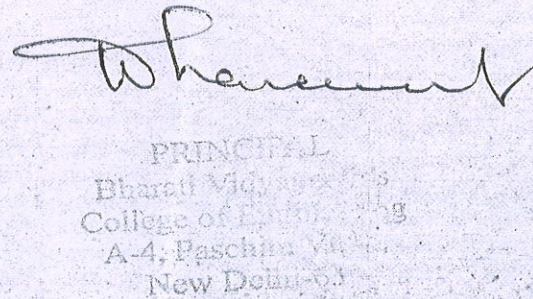 PRINCIPAL
Bharati Vidyapeeth's
College of Engineering
A-4, Paschim
New Delhi-63